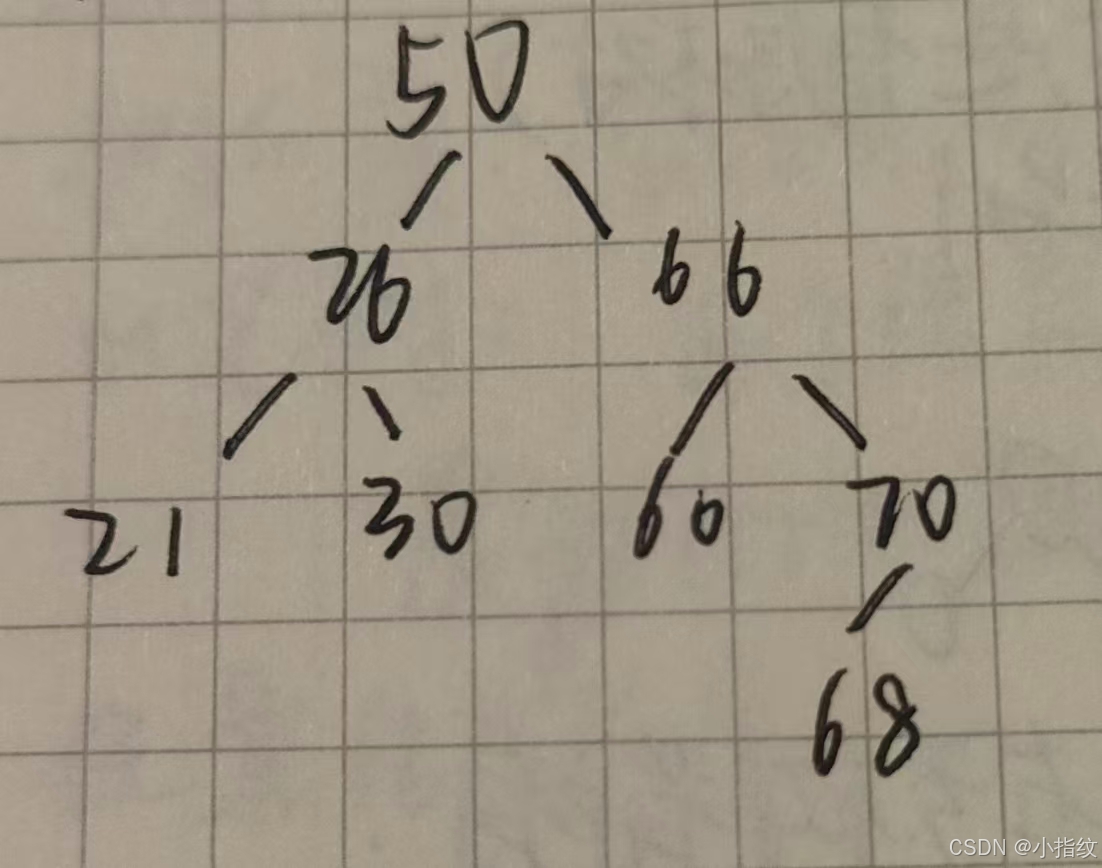 50
26 66
21 30 60 70
68
CSDN @小指纹